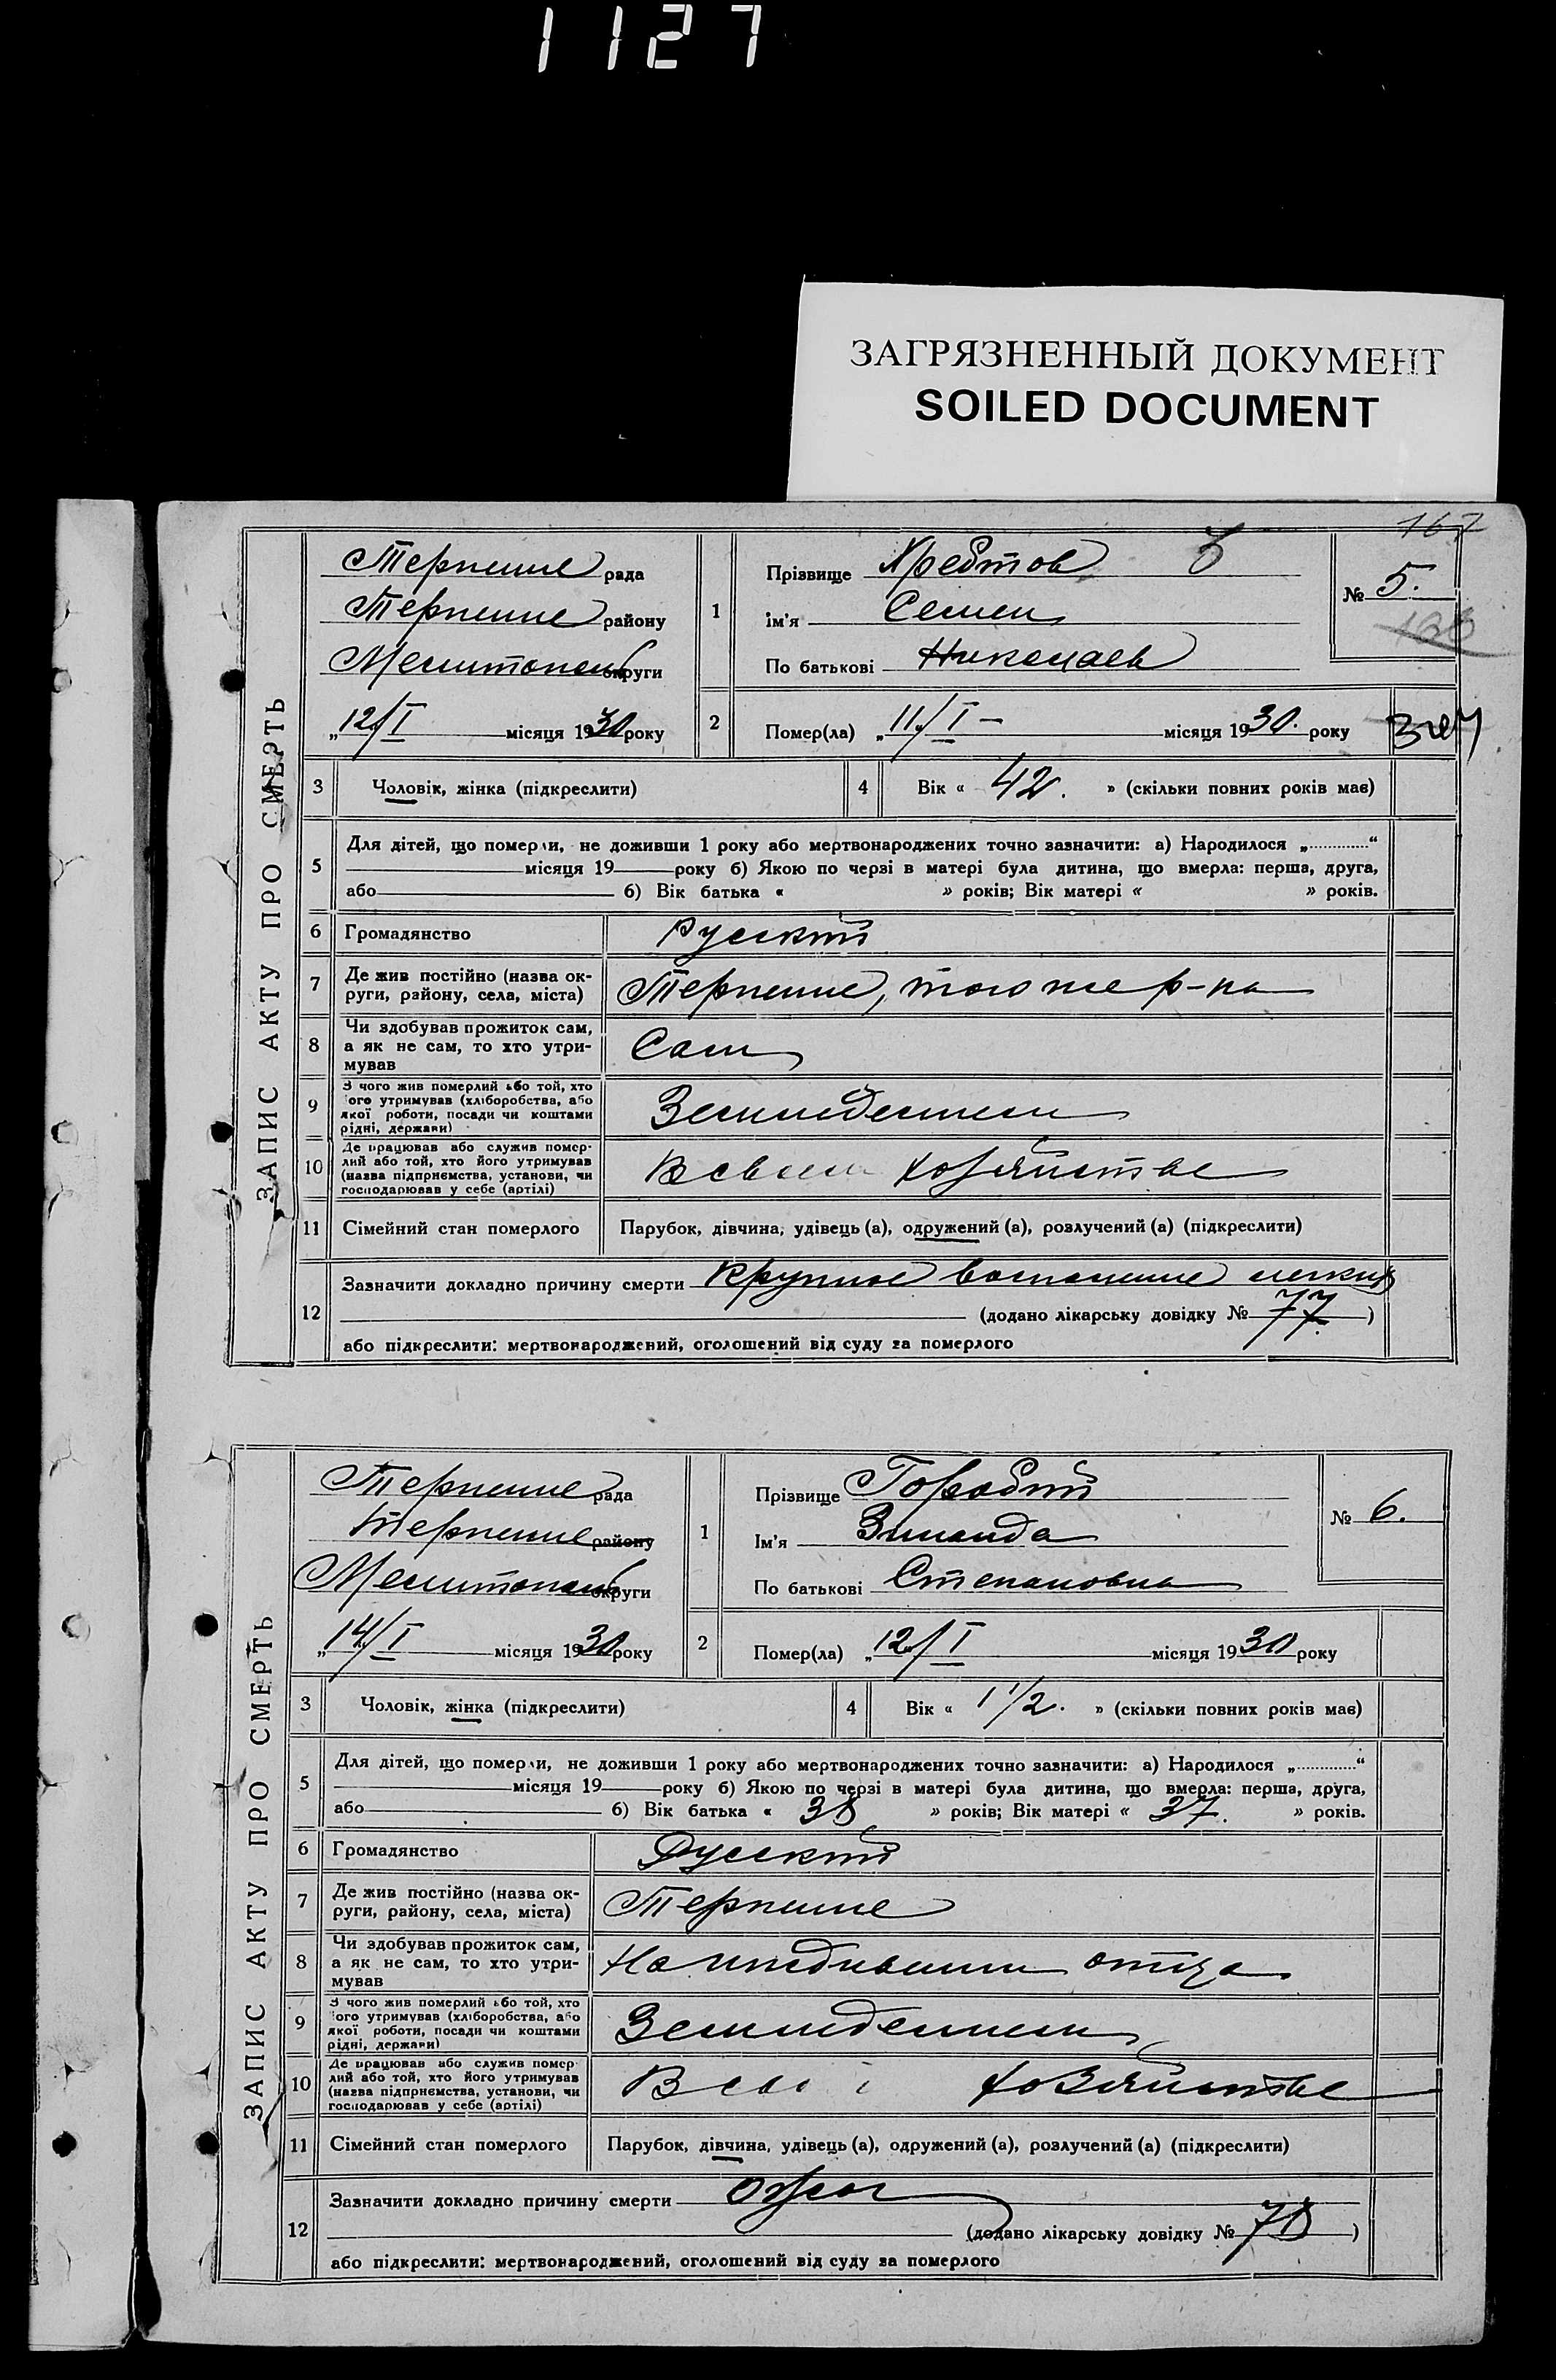 1127
ЗАГРЯЗНЕННЫЙ ДОКУМЕНТ
SOILED DOCUMENT
167
ЗАПИС АКТУ ПРО СМЕРТЬ
Терпение рада
Терпение району
Мелитополь округи
„12/I місяця 1930 року
1 Прізвище Хребтов
ім'я Семен
По батькові Николаев
№ 5.
166
2 Помер(ла) „11/I — місяця 1930. року
3 Чоловік, жінка (підкреслити)
4 Вік « 42. » (скільки повних років має)
5 Для дітей, що померли, не доживши 1 року або мертвонароджених точно зазначити: а) Народилося „............“
місяця 19 року б) Якою по черзі в матері була дитина, що вмерла: перша, друга,
або б) Вік батька « » років; Вік матері « » років.
6 Громадянство Русский
7 Де жив постійно (назва ок-
руги, району, села, міста) Терпение, того же р-на
8 Чи здобував прожиток сам,
а як не сам, то хто утри-
мував Сам
9 З чого жив померлий або той, хто
його утримував (хліборобства, або
якої роботи, посади чи коштами
рідні, держави) Земледелием
10 Де працював або служив помер-
лий або той, хто його утримував
(назва підприємства, установи, чи
господарював у себе (артілі) В своем хозяйстве
11 Сімейний стан померлого Парубок, дівчина, удівець (а), одружений (а), розлучений (а) (підкреслити)
12 Зазначити докладно причину смерти Крупное воспаление легких
(додано лікарську довідку № 77. )
або підкреслити: мертвонароджений, оголошений від суду за померлого
ЗАПИС АКТУ ПРО СМЕРТЬ
Терпение рада
Терпение району
Мелитополь округи
„14/I місяця 1930 року
1 Прізвище Городний
Ім'я Зинаида
По батькові Степановна
№ 6.
2 Помер(ла) „12/I місяця 1930 року
3 Чоловік, жінка (підкреслити)
4 Вік « 1 1/2. » (скільки повних років має)
5 Для дітей, що померли, не доживши 1 року або мертвонароджених точно зазначити: а) Народилося „............“
місяця 19 року б) Якою по черзі в матері була дитина, що вмерла: перша, друга,
або б) Вік батька « 38 » років; Вік матері « 37. » років.
6 Громадянство Русский
7 Де жив постійно (назва ок-
руги, району, села, міста) Терпение
8 Чи здобував прожиток сам,
а як не сам, то хто утри-
мував На иждивении отца
9 З чого жив померлий або той, хто
його утримував (хліборобства, або
якої роботи, посади чи коштами
рідні, держави) Земледелием
10 Де працював або служив помер-
лий або той, хто його утримував
(назва підприємства, установи, чи
господарював у себе (артілі) В хозяйстве
11 Сімейний стан померлого Парубок, дівчина, удівець (а), одружений (а), розлучений (а) (підкреслити)
12 Зазначити докладно причину смерти Ожог
(додано лікарську довідку № 78 )
або підкреслити: мертвонароджений, оголошений від суду за померлого